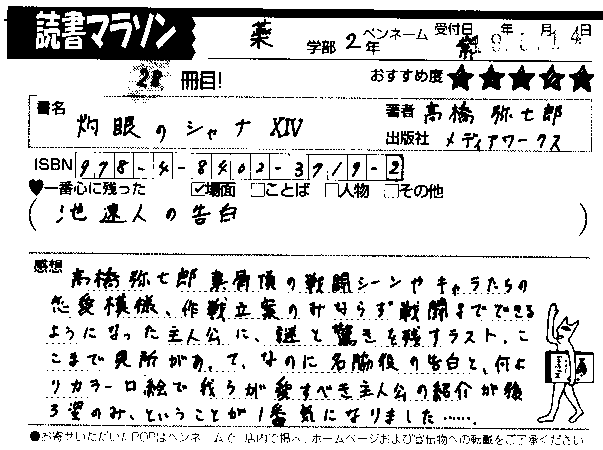 読書マラソン 薬 学部 2年 ペンネーム 受付日 9年 月14日
28 冊目! おすすめ度 ★★★★★
書名 灼眼のシャナ XIV
著者 高橋弥七郎
出版社 メディアワークス
ISBN 978-4-8402-3719-2
♥一番心に残った ☑場面 □ことば □人物 □その他
(池速人の告白)
感想 高橋弥七郎真骨頂の戦闘シーンやキャラたちの
恋愛模様、作戦立案のみならず戦闘までできる
ようになった主人公に、謎と驚きを残すラスト。こ
こまで見所があって、なのに名脇役の告白と、何よ
りカラー口絵で我らが愛すべき主人公の紹介が後
ろ姿のみ、ということが1番気になりました……。
●お寄せいただいたPOPはペンネームで、店内で掲示、ホームページおよび宣伝物への転載をご了承ください